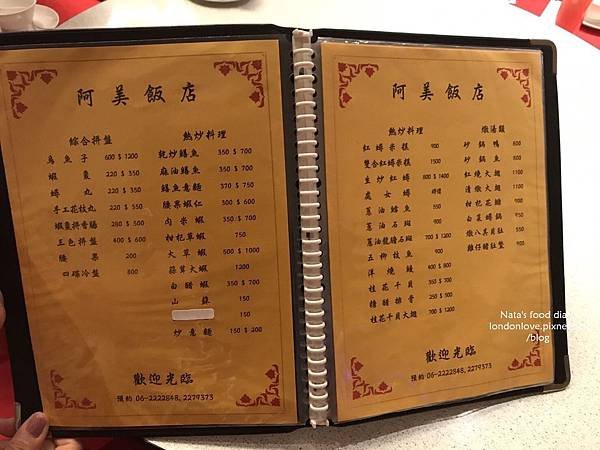 阿美飯店
綜合拼盤
烏魚子 600 $ 1200
蝦棗 220 $ 350
蟳丸 220 $ 350
手工花枝丸 220 $ 550
蝦棗拼香腸 280 $ 500
三色拼盤 400 $ 600
腰果 200
四碟冷盤 800
熱炒料理
乾炒鱔魚 350 $ 700
麻油鱔魚 350 $ 700
鱔魚意麵 370 $ 750
腰果蝦仁 300 $ 600
肉米蝦 350 $ 700
枸杞草蝦 700
大草蝦 500 $ 1000
蒜茸大蝦 1200
白醋蝦 350 $ 700
山蘇 150
炒意麵 150 $ 200
歡迎光臨
預約 06-2222848, 2279373
阿美飯店
熱炒料理
紅蟳米糕 900
雙合紅蟳米糕 1500
生炒紅蟳 800 $ 1400
處女蟳 時價
蔥油鱈魚 550
蔥油石斑 900
蔥油龍膽石斑 700 $ 1200
五柳枝魚 900
洋燒鰻 400 $ 800
桂花干貝 350 $ 700
糖醋排骨 250 $ 500
桂花干貝大翅 700 $ 1200
燉湯類
砂鍋鴨 800
砂鍋魚 800
紅燒大翅 1100
清燉大翅 1100
柑桔花鱔 900
白菜蟳鍋 900
燉八具貝肚 550
雞仔豬肚鱉
歡迎光臨
預約 06-2222848, 2279373
Nata's food dia
londonlove.pixne
/blog